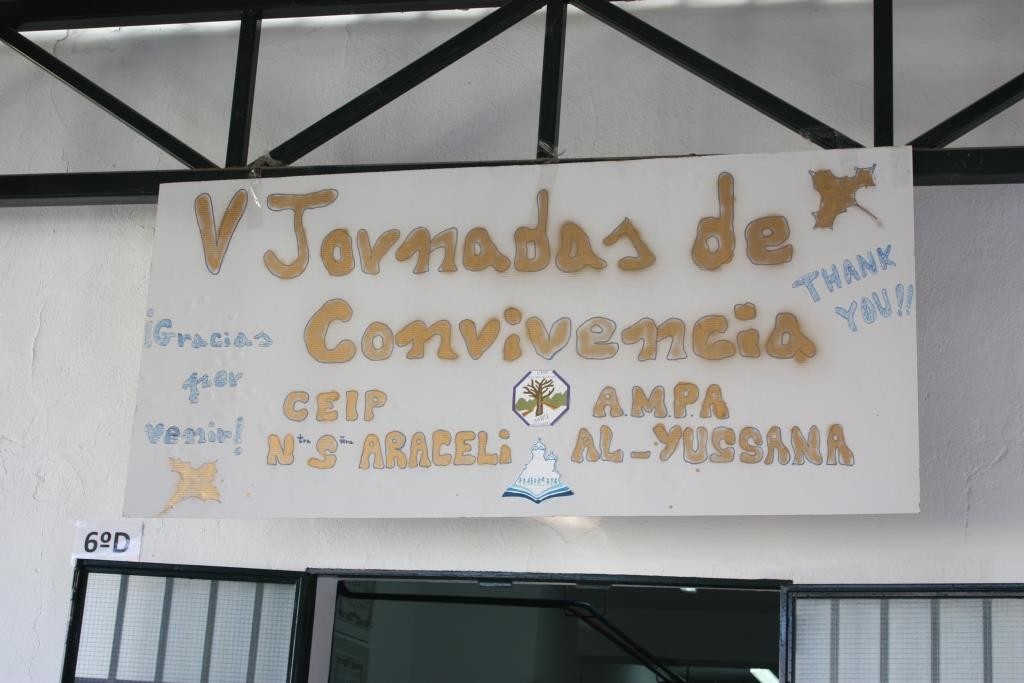 V Jornadas de
Convivencia
THANK
YOU!!
¡Gracias
por
venir!
CEIP
Ntra Sñra ARACELI
A.M.P.A
AL-YUSSANA
6ºD